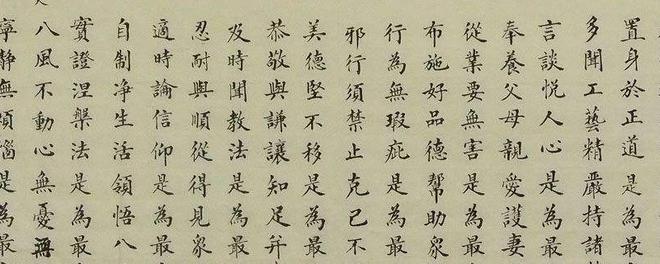 置身於正道是為最
多聞工藝精嚴持諸
言談悅人心是為最
奉養父母親愛護妻
從業要無害是為最
布施好品德幫助眾
行為無瑕疵是為最
邪行須禁止克己不
美德堅不移是為最
恭敬與謙讓知足并
及時聞教法是為最
忍耐與順從得見眾
適時論信仰是為最
自制净生活領悟八
實證涅槃法是為最
八風不動心無憂無
寧靜無煩惱是為最